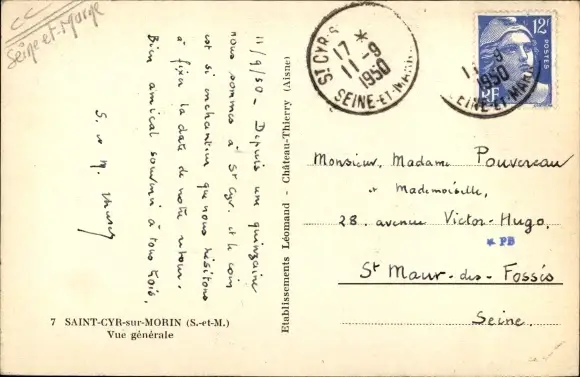 CC
Seine-et-Marne
11/9/50 - Depuis une quinzaine
nous sommes à St Cyr. et le coin
est si enchanteur que nous hésitons
à fixer la date de notre retour.
Bien amical souvenir à tous trois.
S. et M.
7 SAINT-CYR-sur-MORIN (S.-et-M.)
Vue générale
Etablissements Léomand - Château-Thierry (Aisne)
ST CYR S
17 *
11-9
1950
SEINE-ET-MARNE
12F
POSTES
RF
11-9
1950
SEINE-ET-MARNE
Monsieur, Madame Pouvereau
et Mademoiselle,
28. avenue Victor-Hugo.
* PB
St Maur-des-Fossés
Seine.